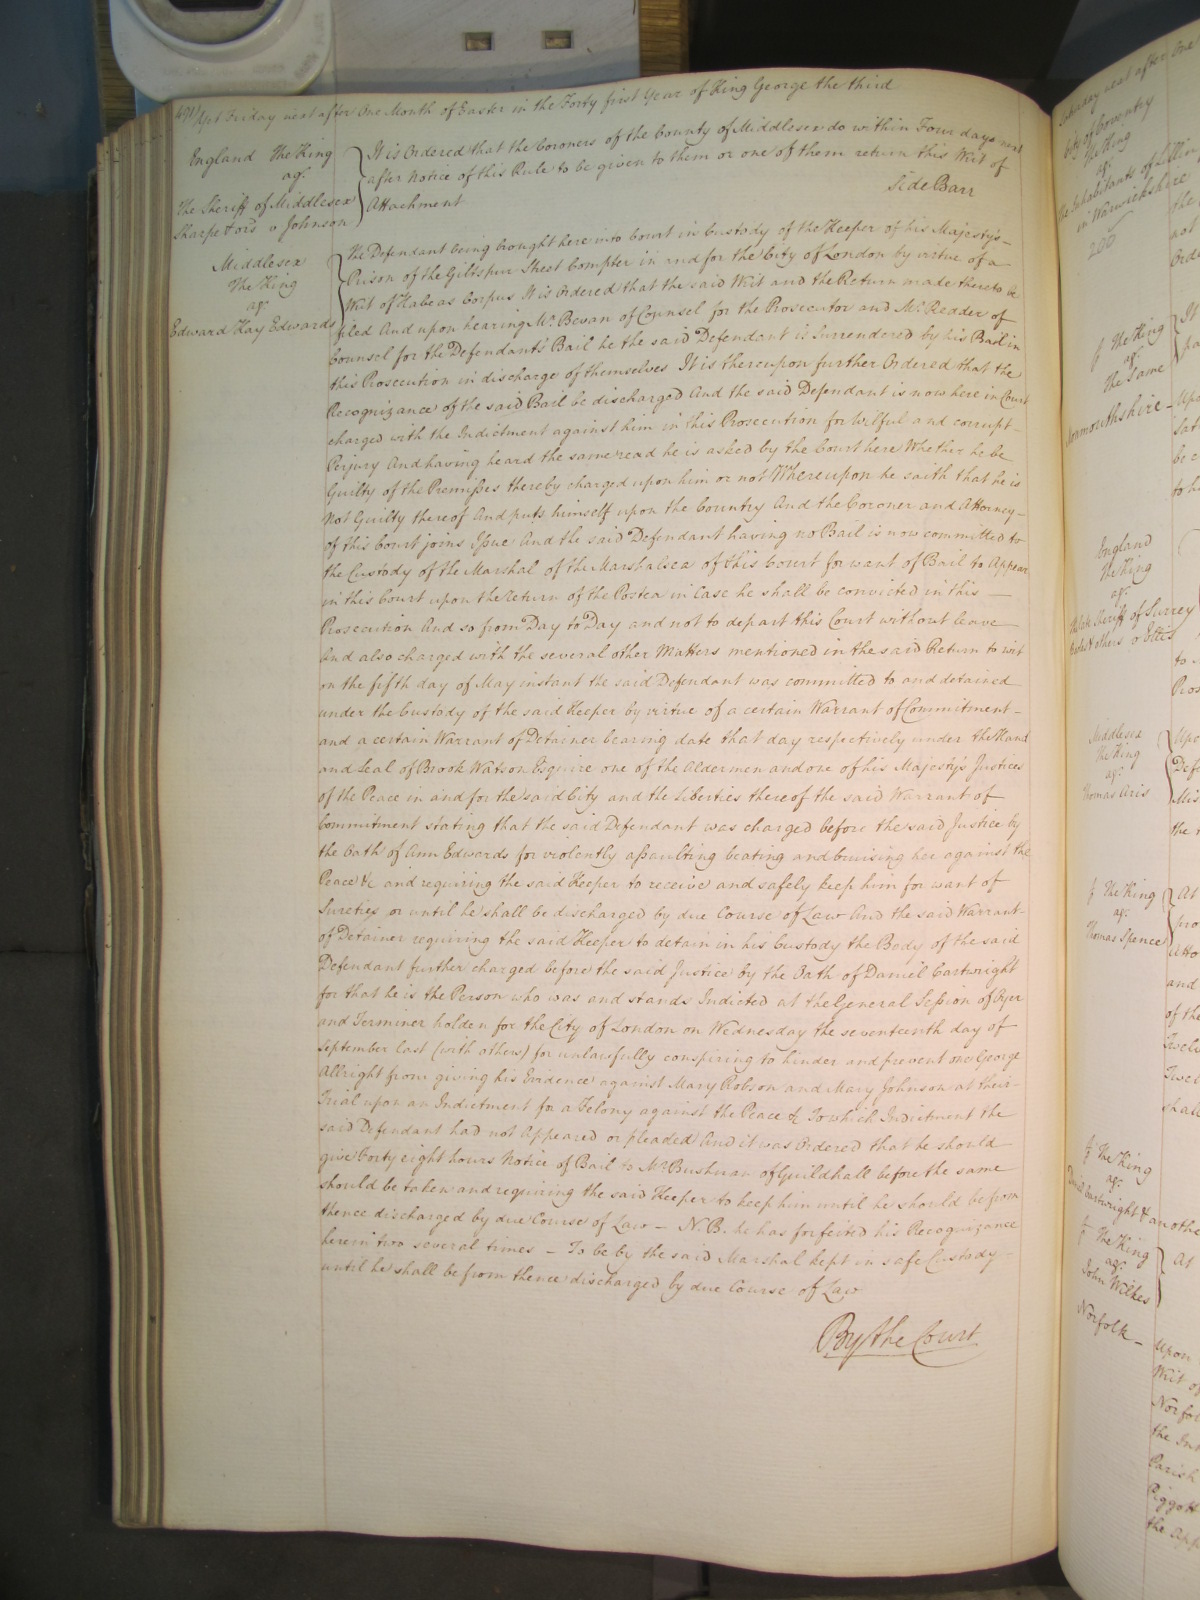 Yet Friday next after One Month of Easter in the Forty first Year of King George the third
England The King
agt
The Sheriff of Middlesex
Sharpe & ors v Johnson
It is Ordered that the Coroners of the County of Middlesex do within Four days next
after Notice of this Rule to be given to them or one of them return this Writ of
Attachment
Side Barr
Middlesex
The King
agt
Edward Hay Edwards
The Defendant being brought here into Court in Custody of the Keeper of his Majesty's
Prison of the Giltspur Street Compter in and for the City of London by virtue of a
Writ of Habeas Corpus It is Ordered that the said Writ and the Return made thereto be
filed And upon hearing Mr Bevan of Counsel for the Prosecutor and Mr Reader of
Counsel for the Defendants Bail he the said Defendant is Surrendered by his Bail in
this Prosecution in discharge of themselves It is thereupon further Ordered that the
Recognizance of the said Bail be discharged And the said Defendant is now here in Court
charged with the Indictment against him in this Prosecution for Wilful and corrupt
Perjury And having heard the same read he is asked by the Court here Whether he be
Guilty of the Premisses thereby charged upon him or not Whereupon he saith that he is
Not Guilty thereof And puts himself upon the Country And the Coroner and Attorney
of this Court joins Issue And the said Defendant having no Bail is now committed to
the Custody of the Marshal of the Marshalsea of this Court for want of Bail to Appear
in this Court upon the return of the Postea in Case he shall be convicted in this
Prosecution And so from Day to Day and not to depart this Court without leave
And also charged with the several other Matters mentioned in the said Return to wit
on the fifth day of May instant the said Defendant was committed to and detained
under the Custody of the said Keeper by virtue of a certain Warrant of Commitment
and a certain Warrant of Detainer bearing date that day respectively under the Hand
and Seal of Brook Watson Esquire one of the Aldermen and one of his Majesty's Justices
of the Peace in and for the said City and the Liberties thereof the said Warrant of
Commitment stating that the said Defendant was charged before the said Justice by
the Oath of Ann Edwards for violently assaulting beating and bruising her against the
Peace &c and requiring the said Keeper to receive and safely keep him for want of
Sureties or until he shall be discharged by due Course of Law And the said Warrant
of Detainer requiring the said Keeper to detain in his Custody the Body of the said
Defendant further charged before the said Justice by the Oath of Daniel Cartwright
for that he is the Person who was and stands Indicted at the General Session of Oyer
and Terminer holden for the City of London on Wednesday the seventeenth day of
September last (with others) for unlawfully conspiring to hinder and prevent one George
Allright from giving his Evidence against Mary Robson and Mary Johnson at their
Trial upon an Indictment for a Felony against the Peace &c To which Indictment the
said Defendant had not Appeared or pleaded And it was Ordered that he should
give Forty eight hours Notice of Bail to Mr Bushnan of Guildhall before the same
should be taken and requiring the said Keeper to keep him until he should be from
thence discharged by due Course of Law - N.B. he has forfeited his Recognizance
herein two several times - To be by the said Marshal kept in safe Custody
until he shall be from thence discharged by due Course of Law
By the Court
Saturday next after One
City of Coventry
The King
agt
The Inhabitants of
in Warwickshire
200
The King
agt
The Same
Monmouthshire
England
The King
agt
The late Sheriff of Surrey
& others v Ellis
Middlesex
The King
agt
Thomas Aris
The King
agt
Thomas Spence
The King
agt
Daniel Cartwright & another
The King
agt
John Wilkes
Norfolk
Upon
Writ of
Norfolk
the Int
Parish
Piggott
the App